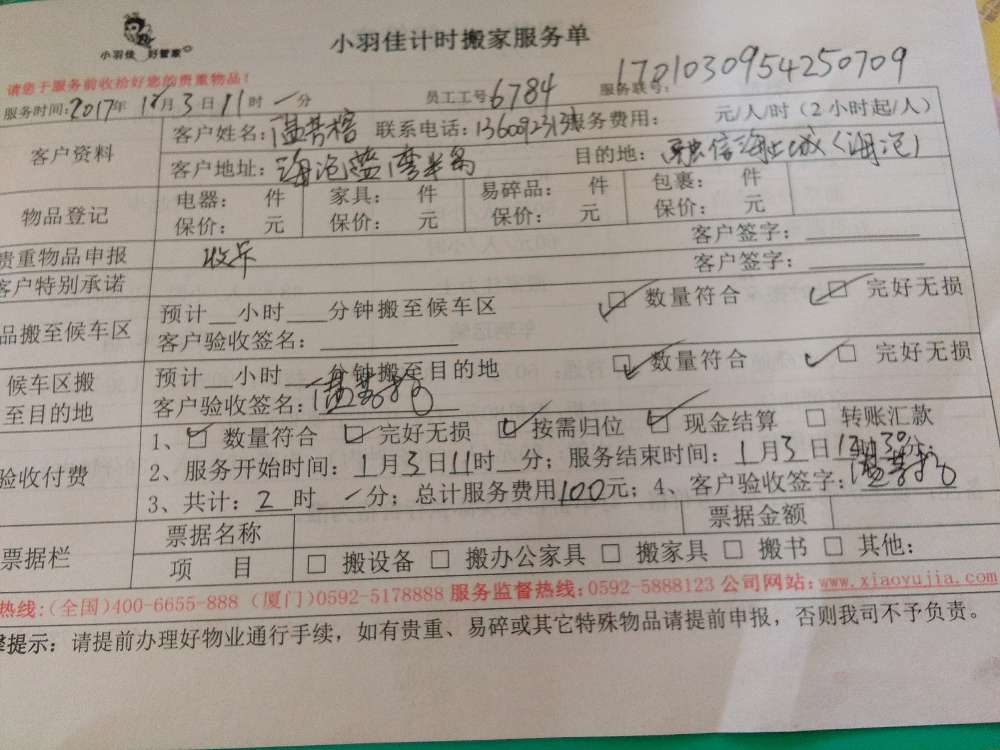 小羽佳 好管家
小羽佳计时搬家服务单
请您于服务前收拾好您的贵重物品！
服务时间：2017年1月3日11时一分 员工工号6784 服务联号：1701030954250709
客户资料
客户姓名： 联系电话： 服务费用： 元/人/时（2小时起/人）
客户地址：海沧蓝湾半岛 目的地：融信海上城（海沧）
物品登记
电器： 件 家具： 件 易碎品： 件 包裹： 件
保价： 元 保价： 元 保价： 元 保价： 元
贵重物品申报 客户签字：
客户特别承诺 客户签字：
品搬至候车区
预计__小时___分钟搬至候车区 数量符合 完好无损
客户验收签名：
候车区搬至目的地
预计__小时___分钟搬至目的地 数量符合 完好无损
客户验收签名：
验收付费
1、 数量符合 完好无损 按需归位 现金结算 转账汇款
2、服务开始时间：1月3日11时__分；服务结束时间：1月3日 时30分；
3、共计：2时一分；总计服务费用100元；4、客户验收签字：
票据栏
票据名称 票据金额
项 目 搬设备 搬办公家具 搬家具 搬书 其他：
热线：（全国）400-6655-888（厦门）0592-5178888 服务监督热线：0592-5888123 公司网站：www.xiaoyujia.com
提示：请提前办理好物业通行手续，如有贵重、易碎或其它特殊物品请提前申报，否则我司不予负责。